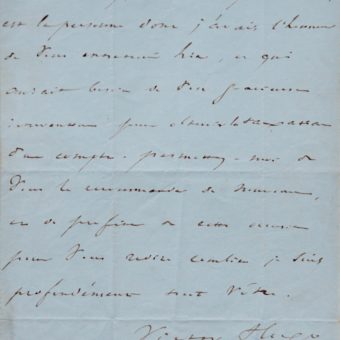 est la personne dont j'avais l'honneur
de vous entretenir hier, et qui
aurait besoin de votre gracieuse
intervention pour
d'un compte. permettez-moi de
vous le recommander de nouveau,
et de profiter de cette occasion
pour vous redire combien je suis
profondément tout vôtre.
Victor Hugo